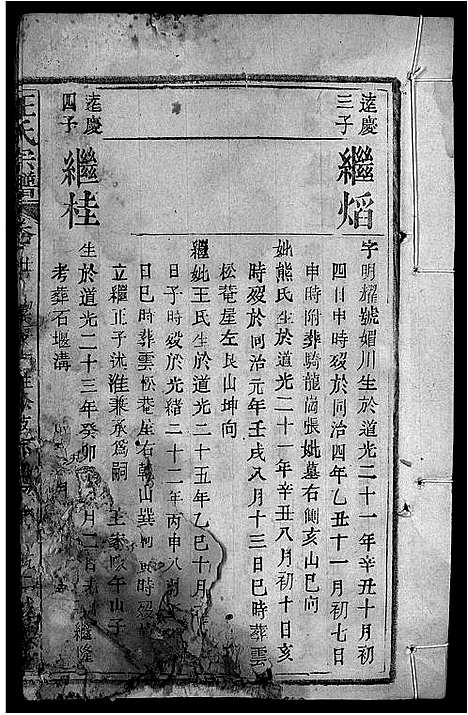 逵慶
三子
繼熖
字明耀號媚川生於道光二十一年辛丑十月初
四日申時歿於同治四年乙丑十一月初七日
申時附葬騎龍崗張妣墓右側亥山巳向
妣熊氏生於道光二十一年辛丑八月初十日亥
時歿於同治元年壬戌八月十三日巳時葬雲
松菴屋左艮山坤向
繼妣王氏生於道光二十五年乙巳十月
日子時歿於光緒二十二年丙申八月
日巳時葬雲松菴屋右 山巽向
立繼正子沭淮兼承爲嗣
逵慶
四子
繼桂
生於道光二十三年癸卯 月二
考葬石堰溝
氏宗譜